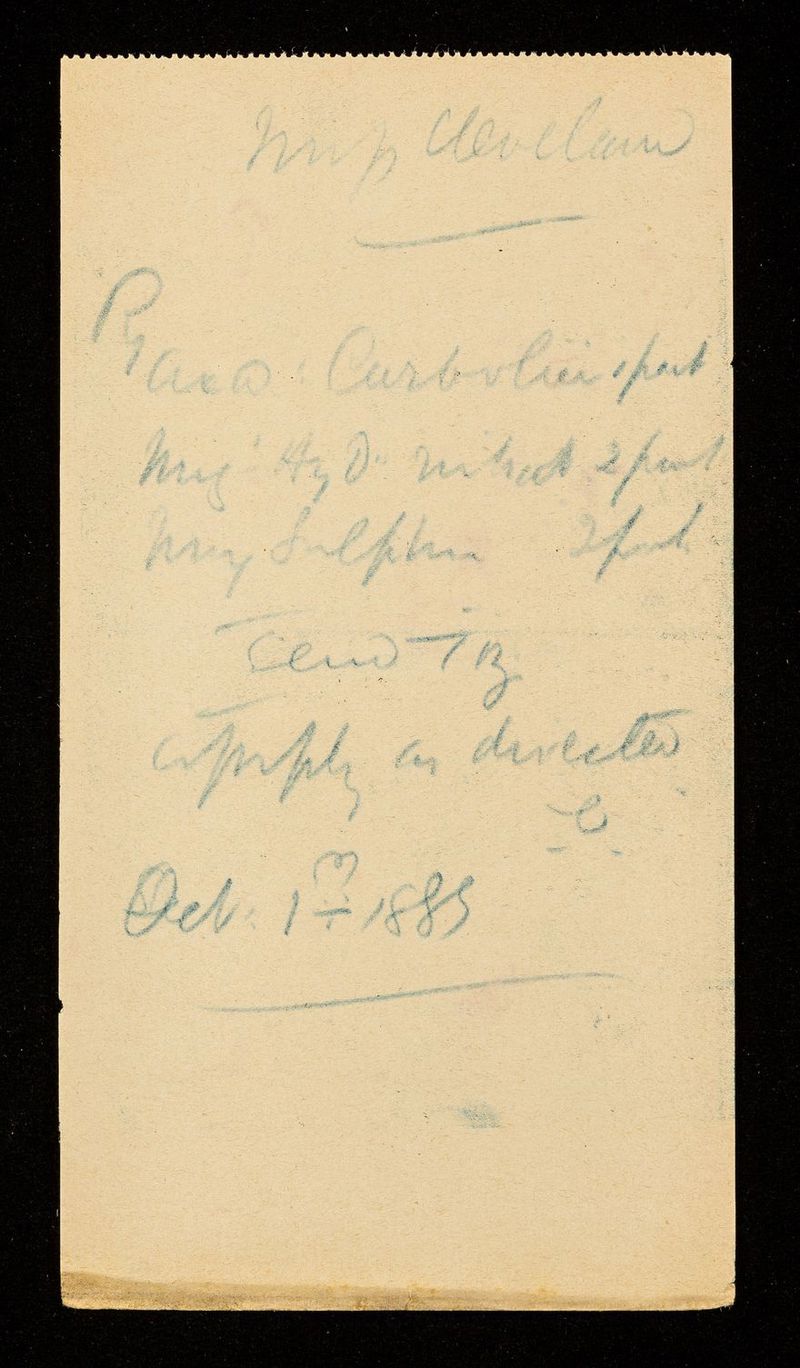 Miss Cleveland
Rx
Acid: Carbolici 1 part
Ung' Hyd. nitrat 2 part
Ung Sulphur 2 part
Send ℥
apply as directed
C
Oct. 1st 1885